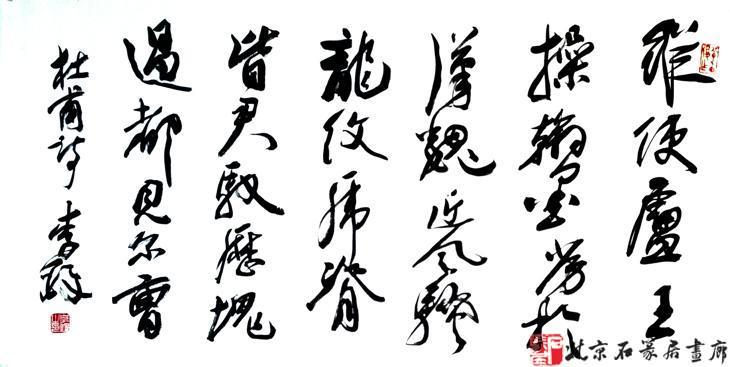 縱使盧王
操翰墨劣於
漢魏近風騷
龍紋虎脊
皆君馭歷塊
過都見尔曹
杜甫詩 李
北京石篆居畫廊